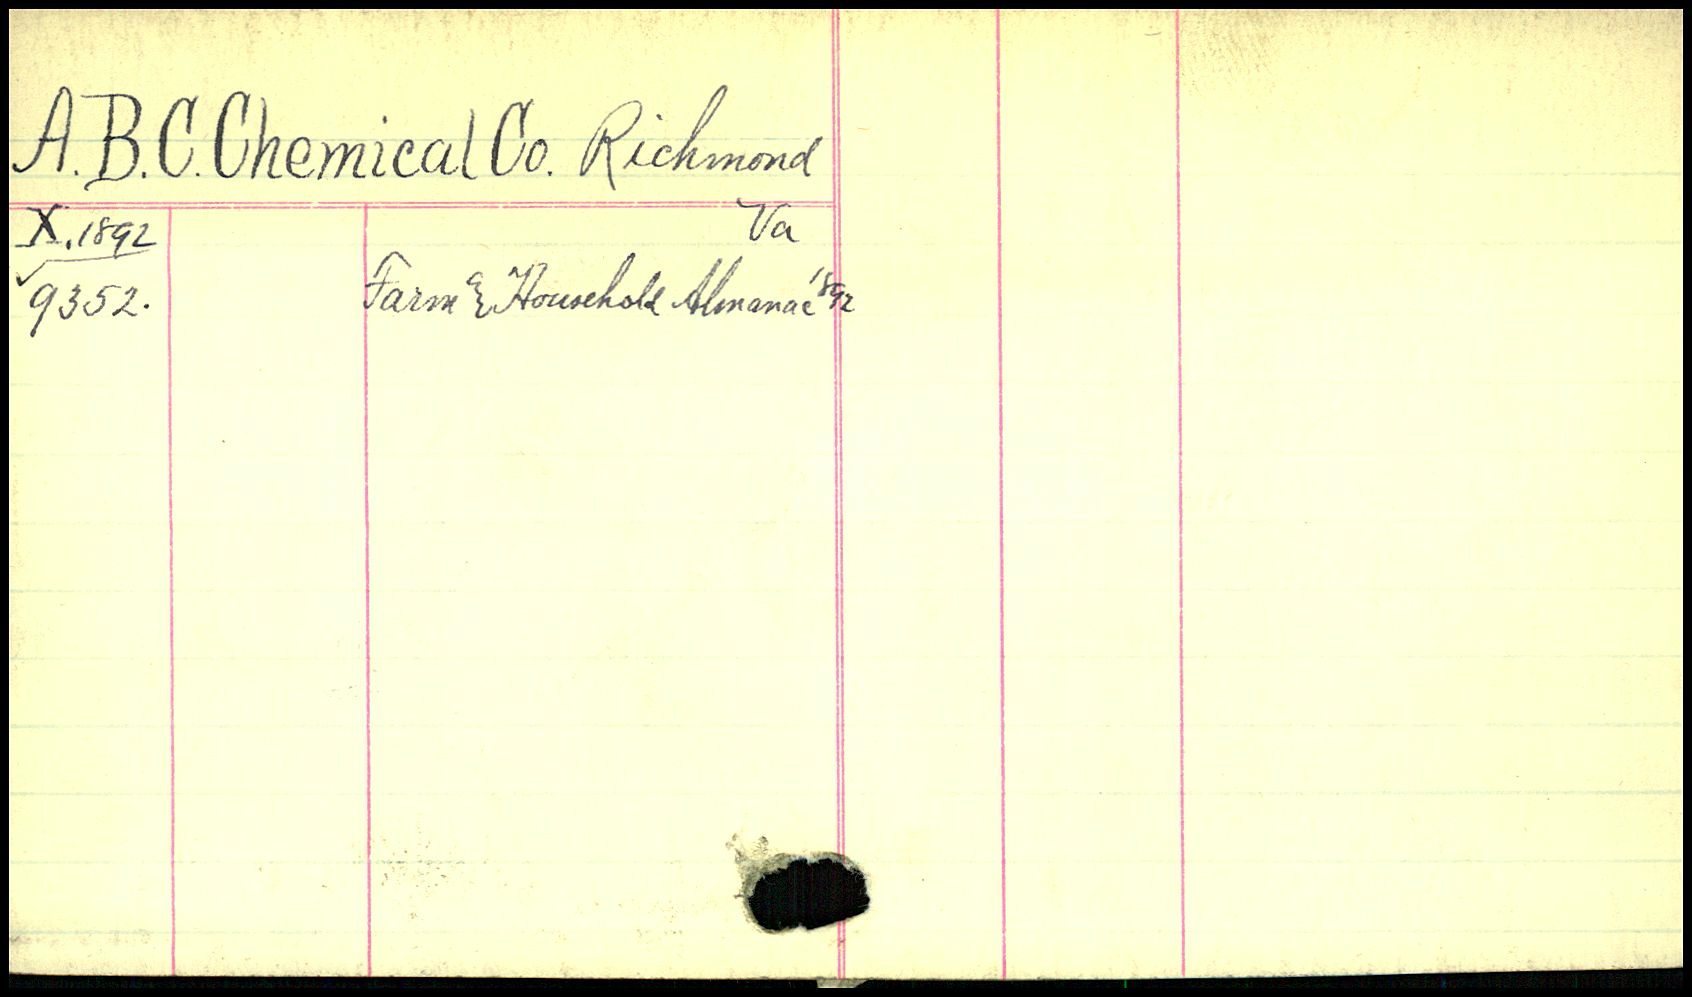 A.B.C. Chemical Co. Richmond
Va
X, 1892
9352. Farm & Household Almanac '892